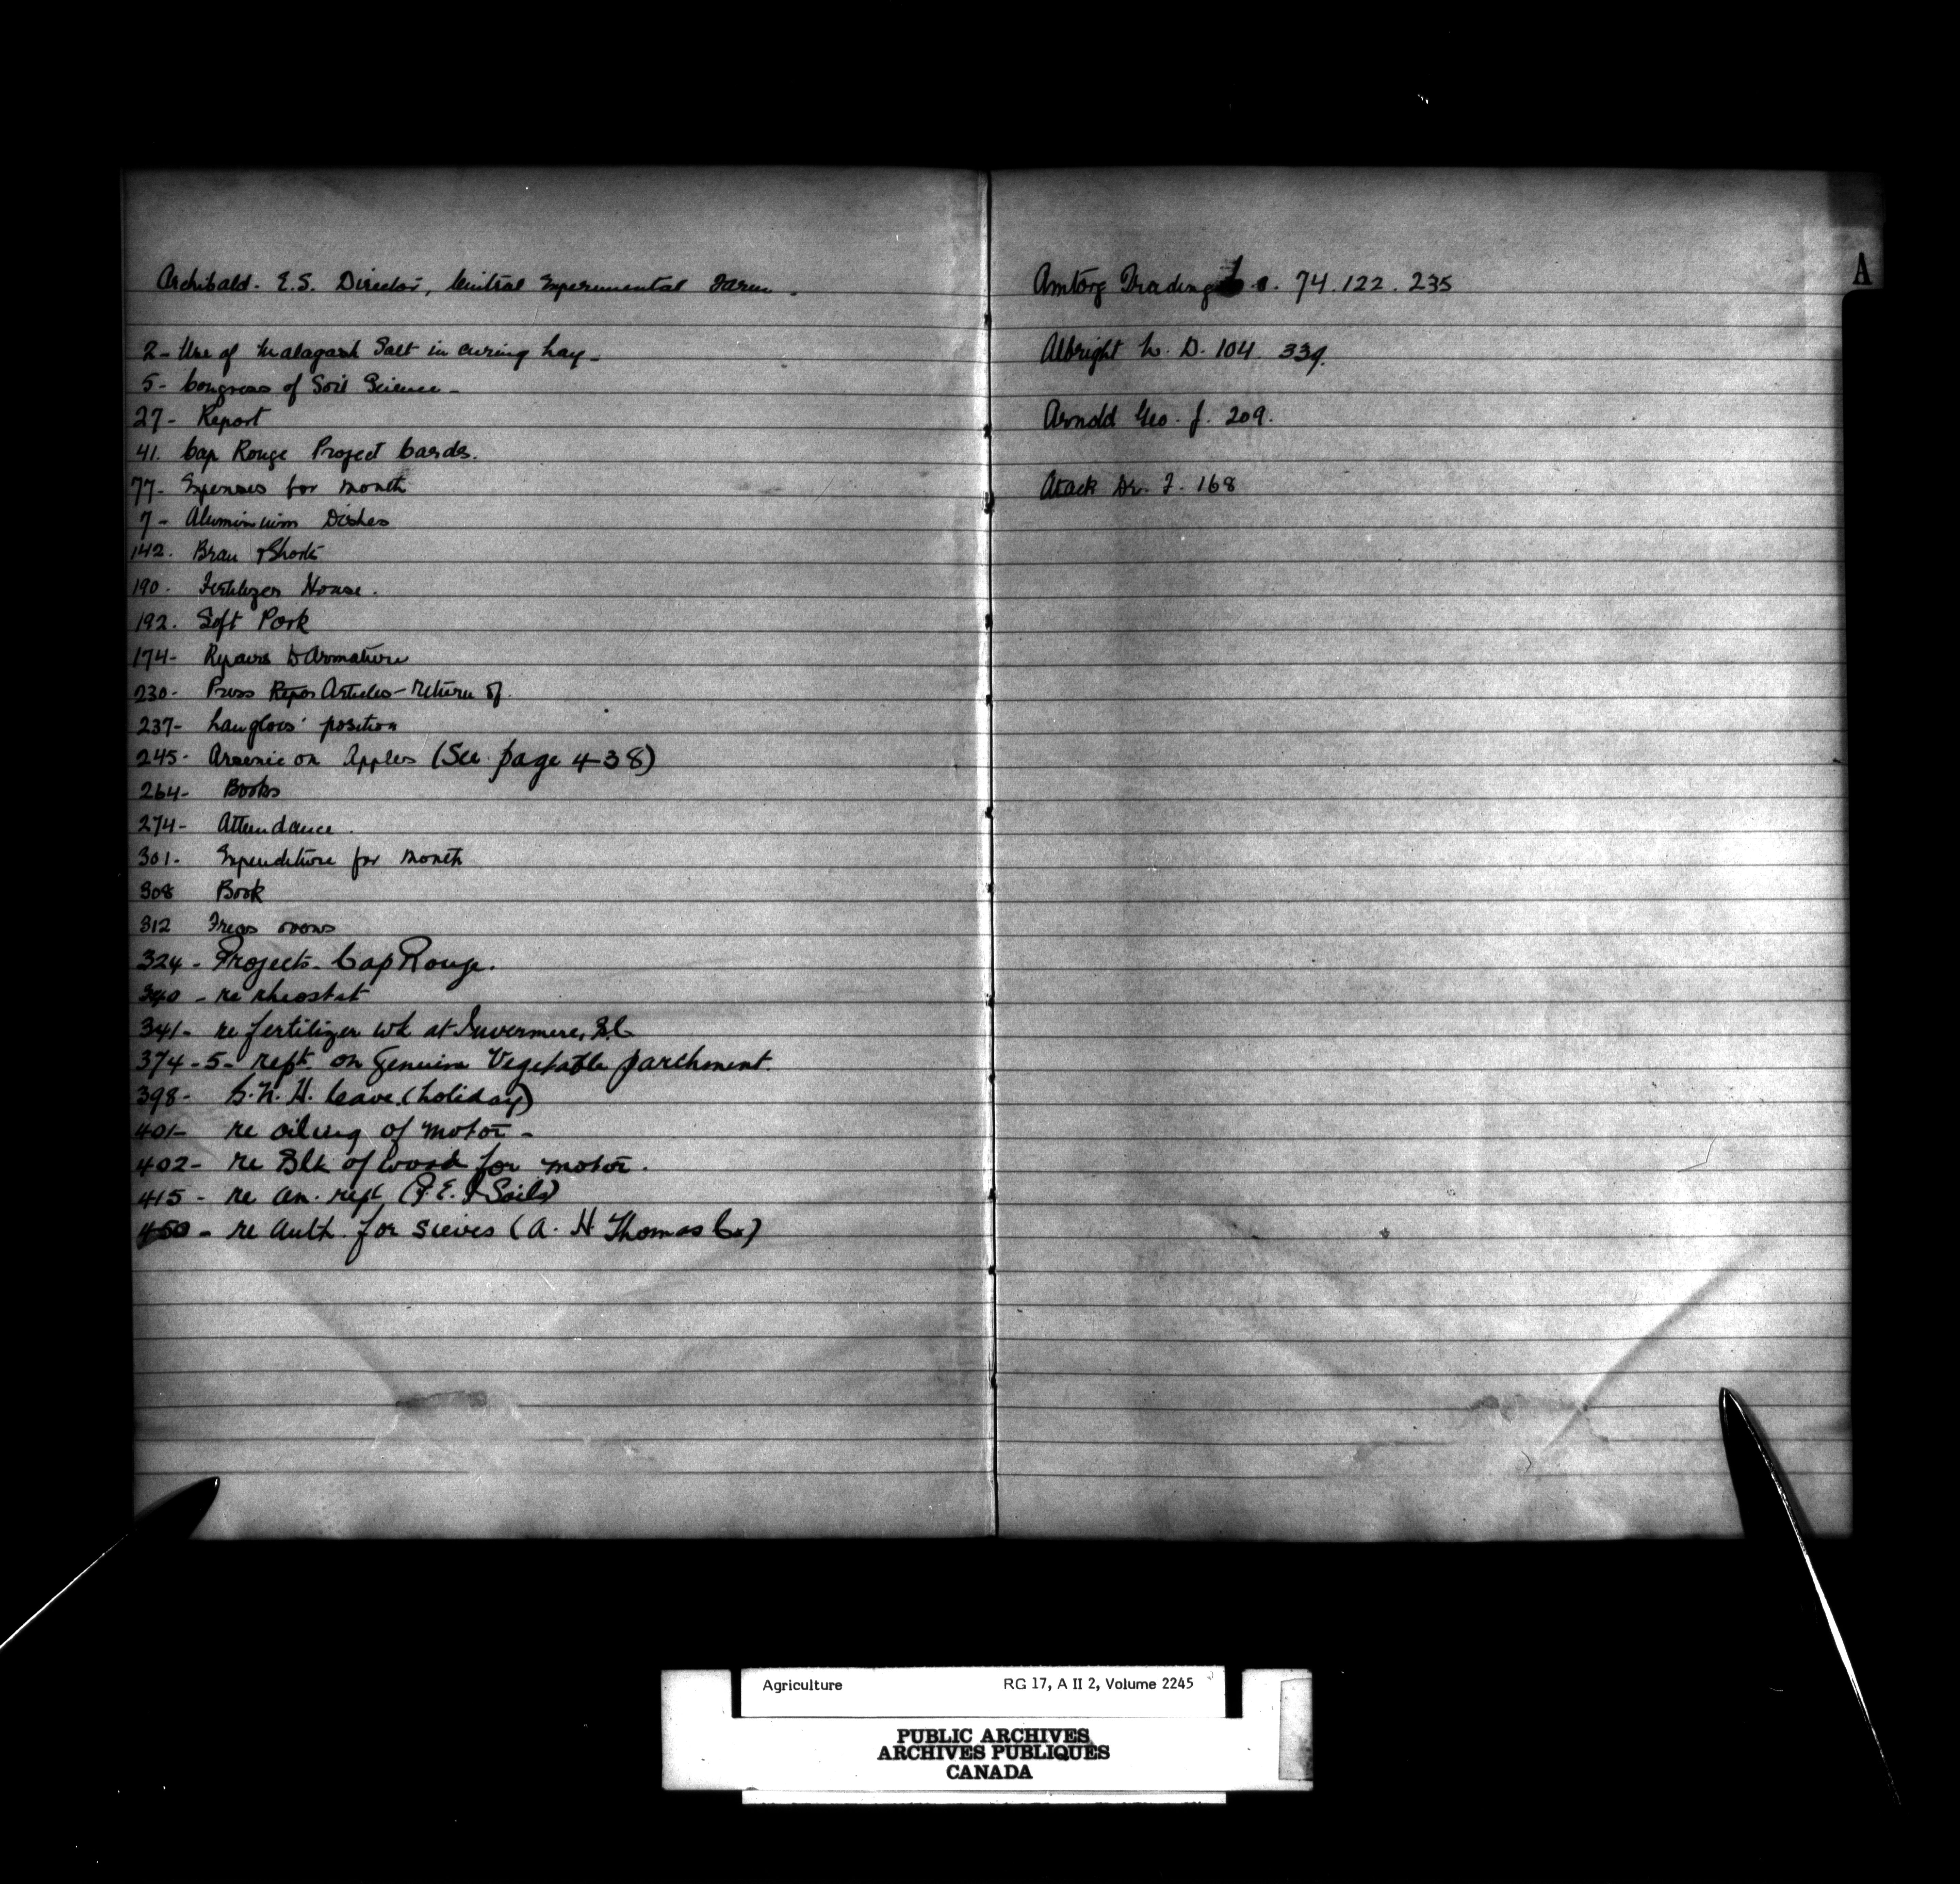 Archibald. E.S. Director, Central Experimental Farm.
2- Use of Malagash Salt in curing hay-
5- Congress of Soil Science-
27- Report
41. Cap Rouge Project Cards.
77- Expenses for month
7- Aluminium Dishes
142. Bran & Shorts
190. Fertilizer House.
192. Soft Pork
174- Repairs to Armature
230- Press Articles - return of.
237- Langlois' position
245- Arsenic on Apples (See page 438)
264- Books
274- Attendance.
301- Expenditure for month
308 Book
312 Freas ovens
324- Projects- Cap Rouge.
340 - re rheostat
341- re fertilizer wk at Invermere, B.C.
374-5- rept. on Genuine Vegetable parchment.
398- H. leave. (holiday)
401- re oiling of motor-
402- re Blk of wood for motor.
415- re an. rept (P.E.I Soils)
450- re auth. for sieves (A. H Thomas Co)
Amtorg Trading Co. 74.122.235
Albright W. D. 104. 339.
Arnold Geo. J. 209.
Atack Dr. F. 168
A
Agriculture RG 17, A II 2, Volume 2245
PUBLIC ARCHIVES
ARCHIVES PUBLIQUES
CANADA